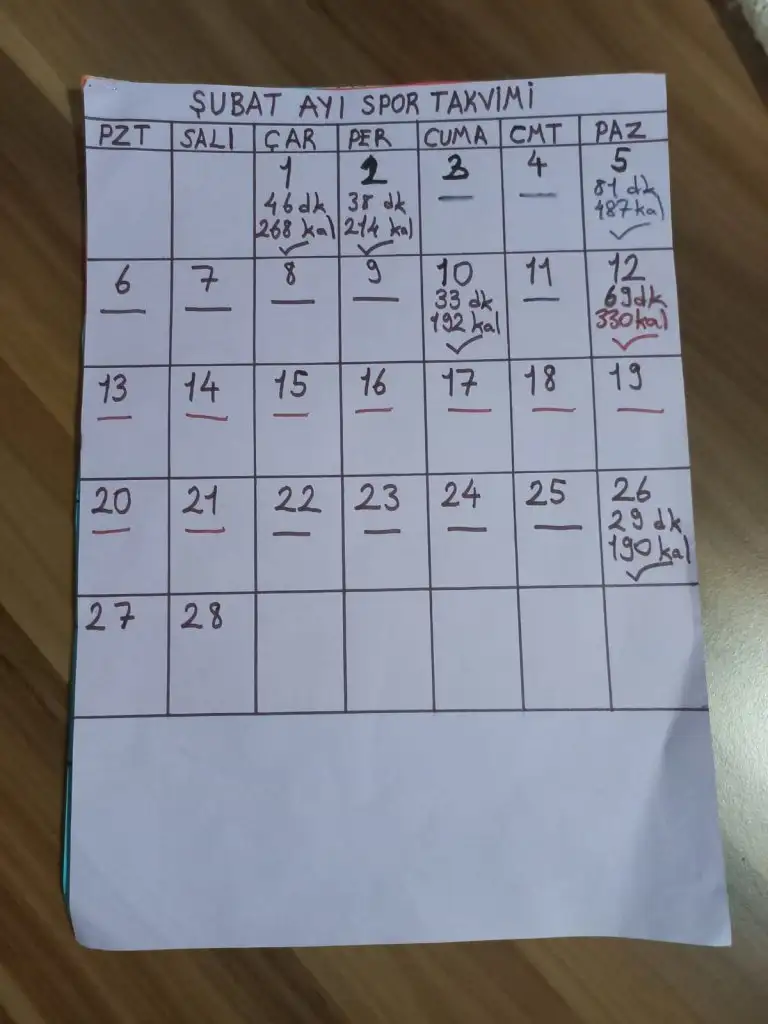 ŞUBAT AYI SPOR TAKVİMİ
PZT SALI ÇAR PER CUMA CMT PAZ
1 2 3 4 5
46 dk 38 dk 81 dk
268 kal 214 kal 487 kal
6 7 8 9 10 11 12
33 dk 69 dk
192 kal 330 kal
13 14 15 16 17 18 19
20 21 22 23 24 25 26
29 dk
190 kal
27 28